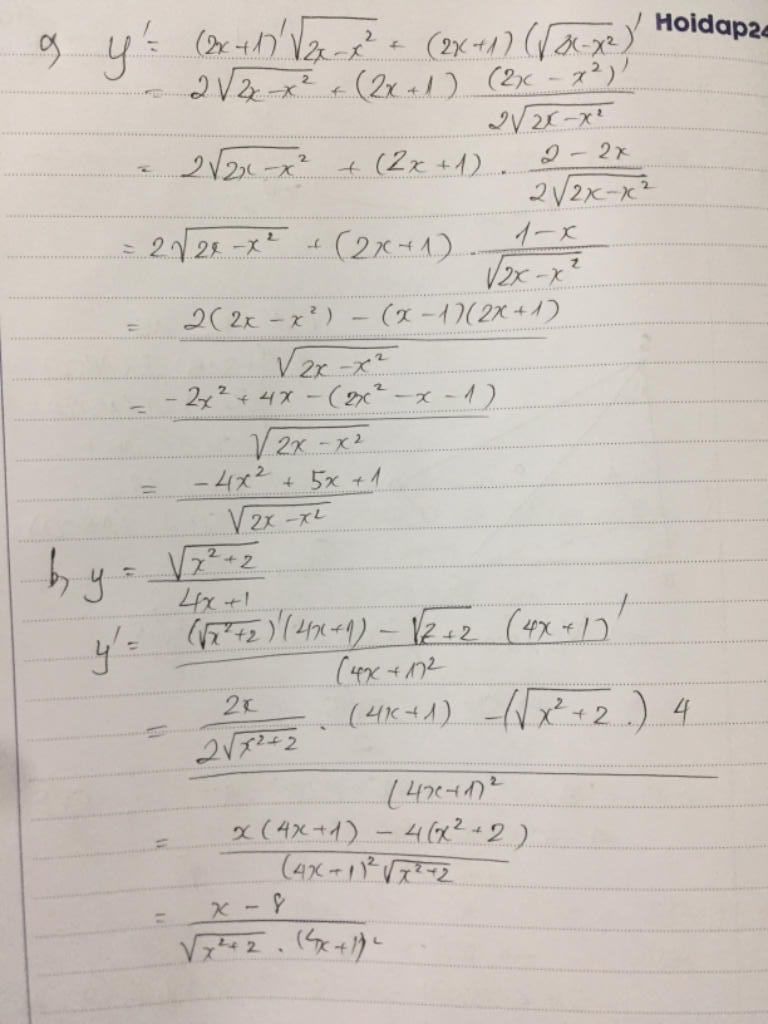 Hoidap24
a, y' = (2x+1)'√(2x-x²) + (2x+1)(√(2x-x²))'
= 2√(2x-x²) + (2x+1) (2x-x²)'/(2√(2x-x²))
= 2√(2x-x²) + (2x+1) . (2-2x)/(2√(2x-x²))
= 2√(2x-x²) + (2x+1) . (1-x)/√(2x-x²)
= (2(2x-x²) - (x-1)(2x+1))/√(2x-x²)
= (-2x²+4x-(2x²-x-1))/√(2x-x²)
= (-4x²+5x+1)/√(2x-x²)
b, y = √(x²+2)/(4x+1)
y' = ((√(x²+2))'(4x+1) - √(2+2) (4x+1)')/(4x+1)²
= (2x/(2√(x²+2)) . (4x+1) -(√(x²+2) .) 4)/(4x+1)²
= (x(4x+1) - 4(x²+2))/((4x+1)²√(x²+2))
= (x-8)/(√(x²+2) . (4x+1)²)